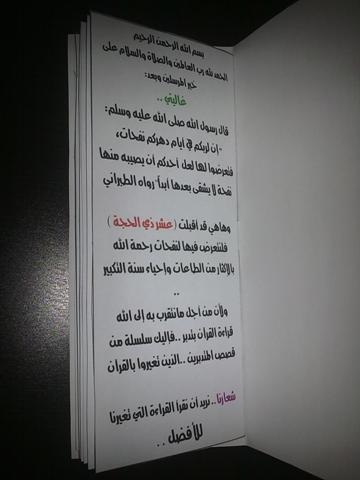 بسم الله الرحمن الرحيم
الحمد لله رب العالمين والصلاة والسلام على
خير المرسلين وبعد:
غاليتي ..
قال رسول الله صلى الله عليه وسلم:
"إن لربكم في أيام دهركم نفحات،
فتعرضوا لها لعل أحدكم أن يصيبه منها
نفحة لا يشقى بعدها أبدا" رواه الطبراني
وهاهي قد أقبلت ( عشر ذي الحجة )
فلنتعرض فيها لنفحات رحمة الله
بالاكثار من الطاعات وإحياء سنة التكبير
..
ولأن من أجل ما نتقرب به إلى الله
قراءة القرآن بتدبر .. فإليك سلسلة من
قصص المتدبرين .. الذين تغيروا بالقرآن
شعارنا .. نريد أن نقرأ القراءة التي تغيرنا
للأفضل ..